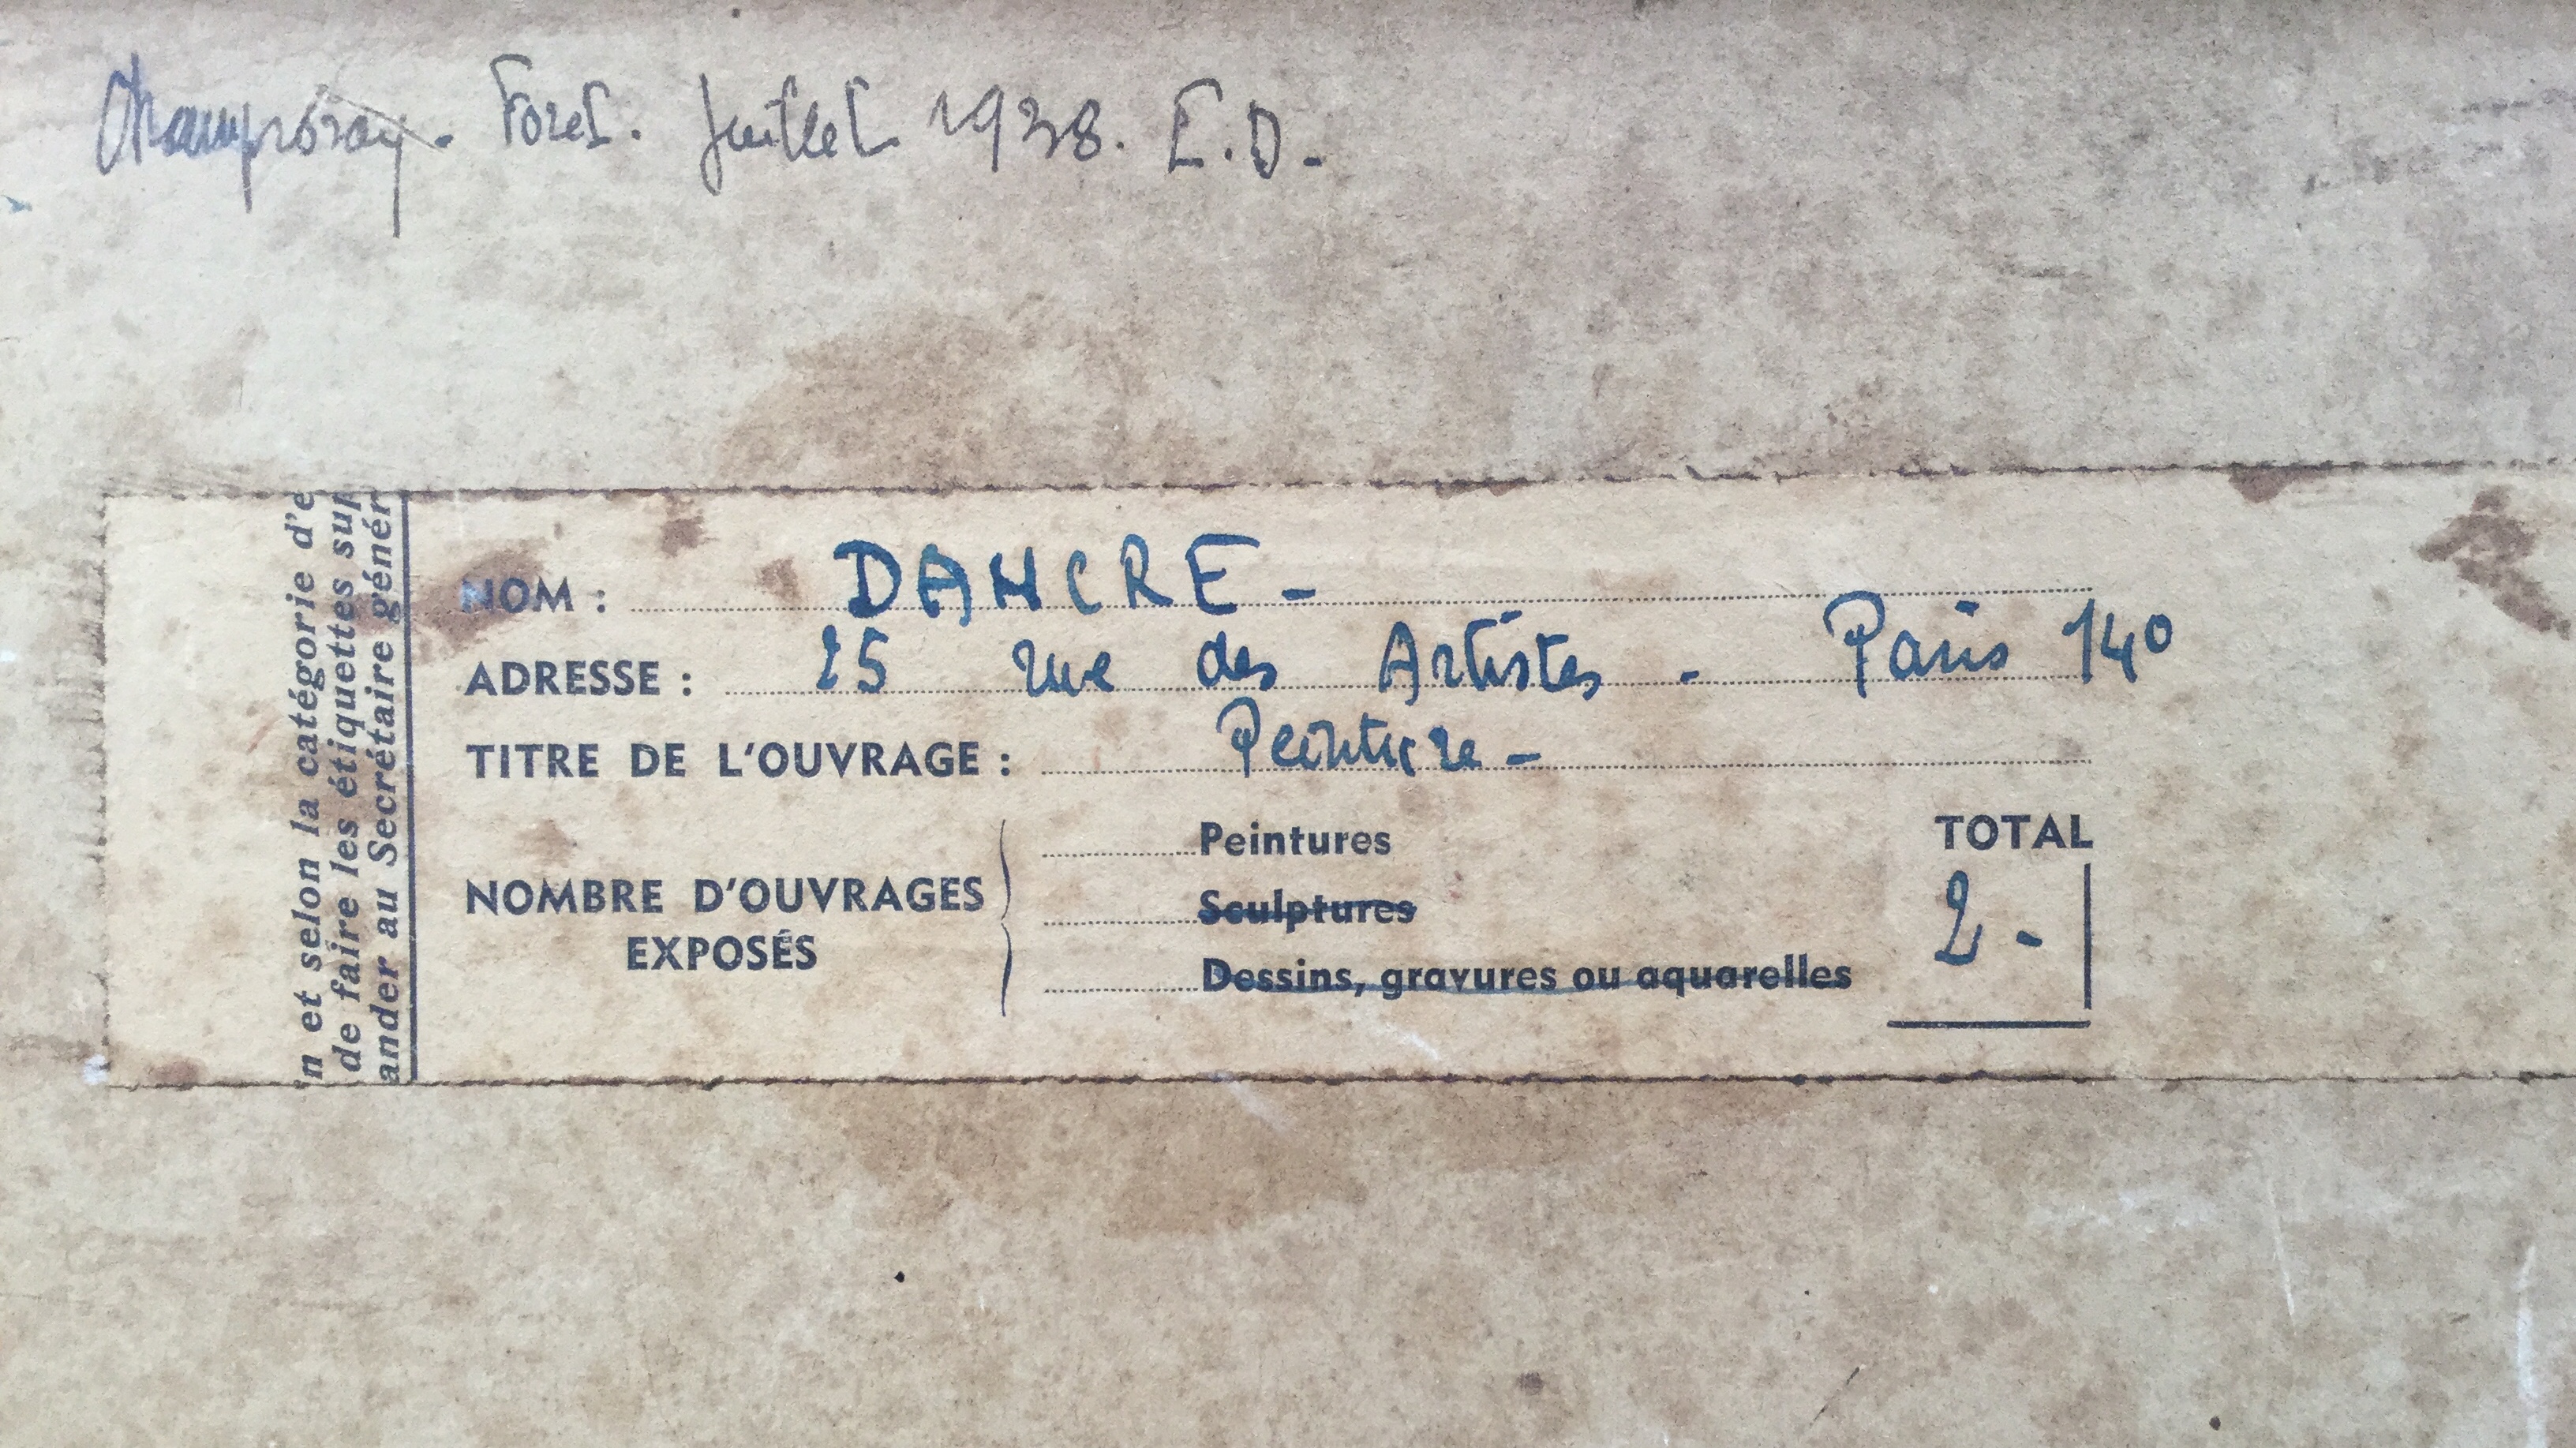 Champrosay. Foret. Juillet 1938. E.D.
NOM : DANCRE -
ADRESSE : 25 rue des Artistes - Paris 14º
TITRE DE L'OUVRAGE : Peinture -
NOMBRE D'OUVRAGES EXPOSÉS
Peintures
Sculptures
Dessins, gravures ou aquarelles
TOTAL
2 -
n et selon la catégorie d'e
de faire les étiquettes sup
ander au Secrétaire génér